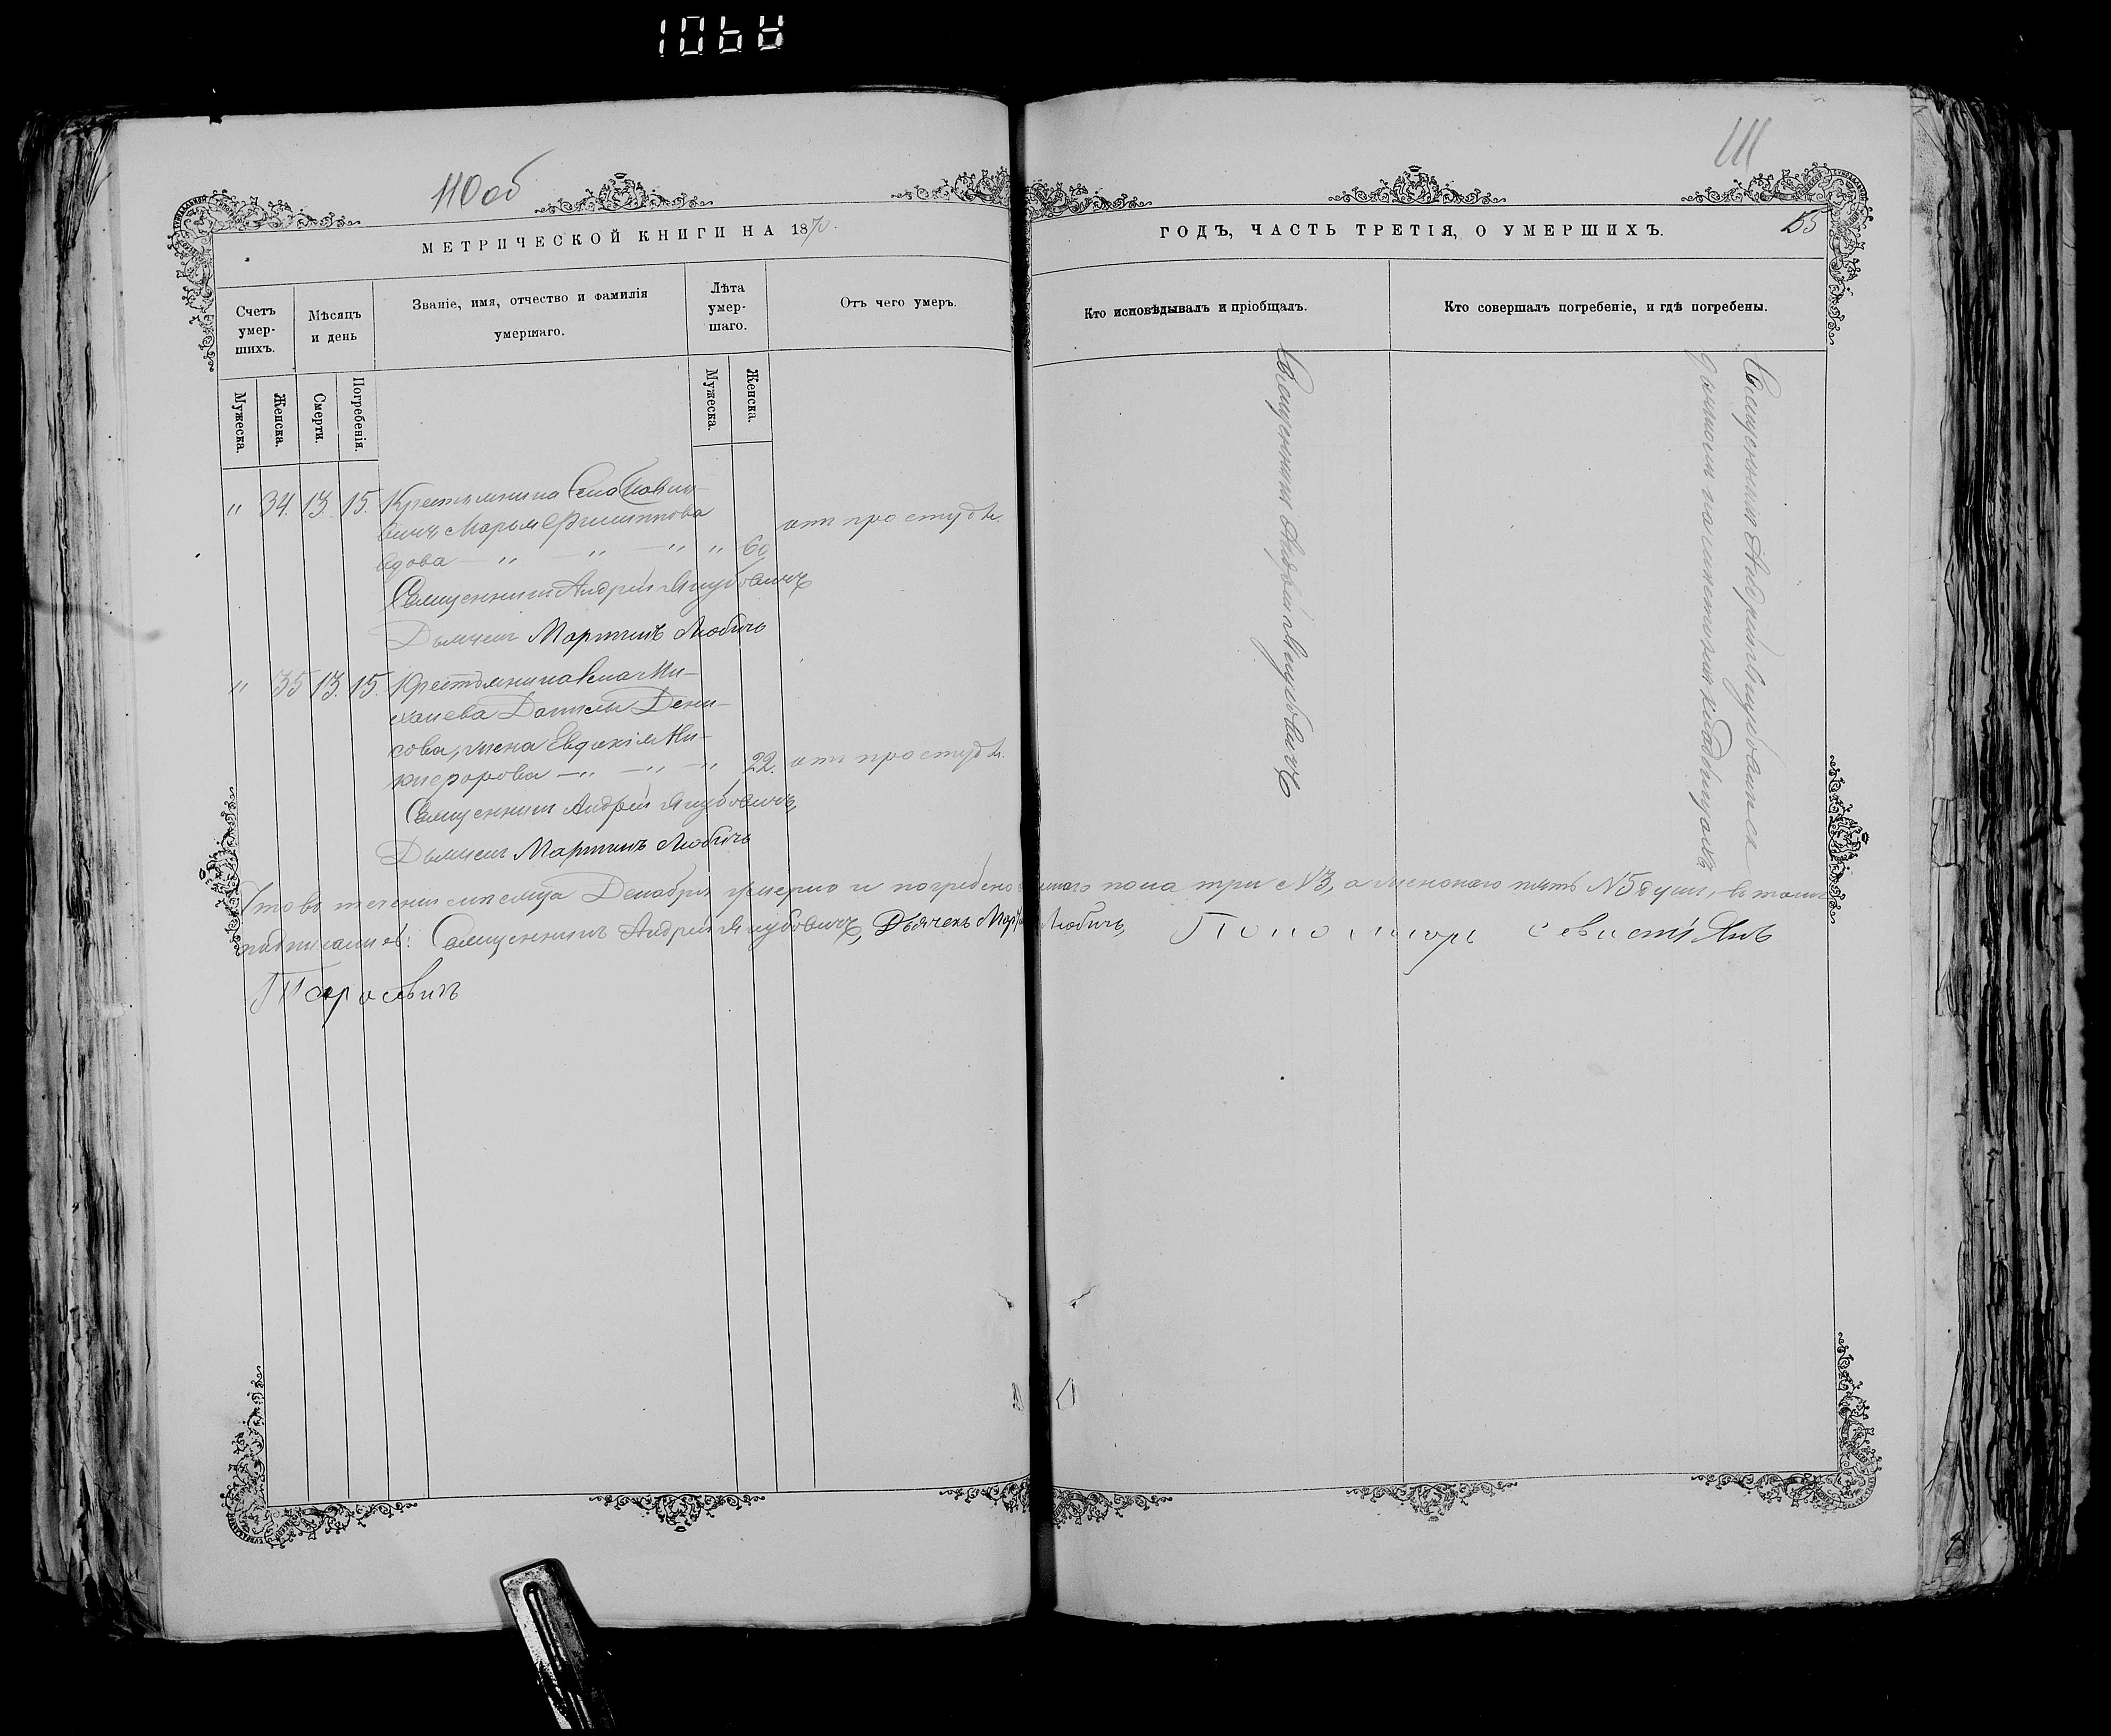 110 об
111
МЕТРИЧЕСКОЙ КНИГИ НА 1870.
ГОДЪ, ЧАСТЬ ТРЕТІЯ, О УМЕРШИХЪ.
55
Счетъ умершихъ.
Мѣсяцъ и день
Званіе, имя, отчество и фамилія умершаго.
Лѣта умершаго.
Отъ чего умеръ.
Кто исповѣдывалъ и пріобщалъ.
Кто совершалъ погребеніе, и гдѣ погребены.
Мужеска.
Женска.
Смерти.
Погребенія.
Мужеска.
Женска.
" 34. 13. 15. Крестьянина
Марья Филиппова
вдова — " — " — " " 60 отъ простуды.
Священникъ Андрей Якубовичъ
Дьячекъ Мартинъ Любичъ
" 35 13. 15. Крестьянина села Ми-
хаиева Даніила Дени-
сова, жена Евдокія Ни-
кифорова — " — " — " 22. отъ простуды.
Священникъ Андрей Якубовичъ,
Дьячекъ Мартинъ Любичъ
Священникъ Андрей Якубовичъ
Священникъ Андрей Якубовичъ на
приходскомъ кладбищѣ
Что въ теченіи мѣсяца Декабря умерло и погребено мужескаго пола три №3, а женскаго пять №5 душъ, въ томъ
подписались: Священникъ Андрей Якубовичъ, Дьячекъ Мартинъ Любичъ, Пономарь Севастіянъ
Тарасевичъ